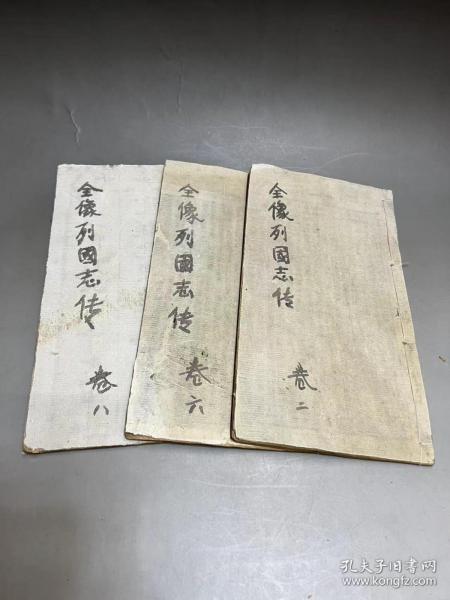 全像列國志传
卷二
全像列國志传
卷六
全像列國志传
卷八
孔夫子旧书网
www.kongfz.com